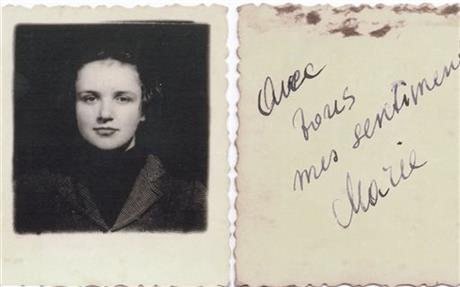 Avec
tous
mes sentimen
Marie